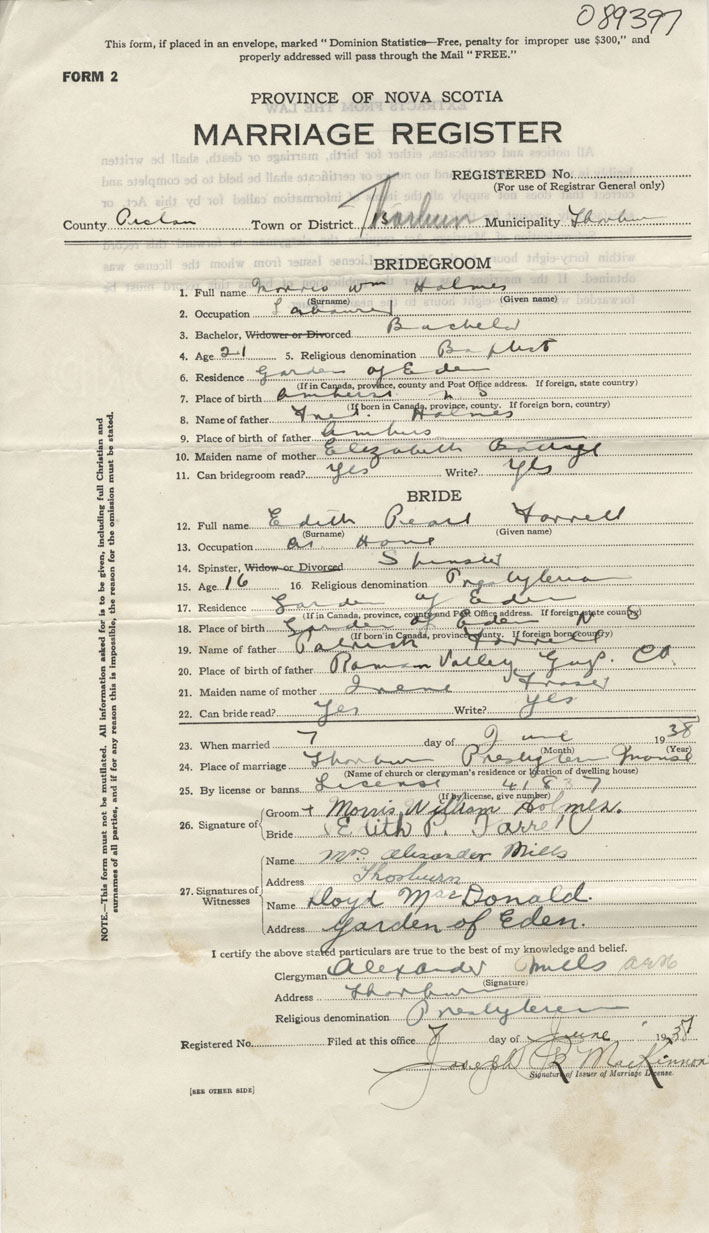 089397
This form, if placed in an envelope, marked "Dominion Statistics—Free, penalty for improper use $300," and
properly addressed will pass through the Mail "FREE."
FORM 2
PROVINCE OF NOVA SCOTIA
MARRIAGE REGISTER
REGISTERED No.
(For use of Registrar General only)
County Pictou Town or District Thorburn Municipality Thorburn
BRIDEGROOM
1. Full name Morris Wm Holmes
(Surname) (Given name)
2. Occupation Labourer
3. Bachelor, Widower or Divorced Bachelor
4. Age 21 5. Religious denomination Baptist
6. Residence Garden of Eden
(If in Canada, province, county and Post Office address. If foreign, state country)
7. Place of birth Amherst N S
(If born in Canada, province, county. If foreign born, country)
8. Name of father Holmes
9. Place of birth of father Amherst
10. Maiden name of mother Elizabeth
11. Can bridegroom read? Yes Write? Yes
BRIDE
12. Full name Edith Pearl Farrell
(Surname) (Given name)
13. Occupation At Home
14. Spinster, Widow or Divorced Spinster
15. Age 16 16. Religious denomination Presbyterian
17. Residence Garden of Eden
(If in Canada, province, county and Post Office address. If foreign, state country)
18. Place of birth Garden of Eden N S
(If born in Canada, province, county. If foreign born, country)
19. Name of father Patrick Farrell
20. Place of birth of father Roman Valley Guys. Co.
21. Maiden name of mother Irene Fraser
22. Can bride read? Yes Write? Yes
23. When married 7 day of June 1938
(Month) (Year)
24. Place of marriage Thorburn Presbyterian Manse
(Name of church or clergyman's residence or location of dwelling house)
25. By license or banns. License 41837
(If by license, give number)
26. Signature of
Groom + Morris William Holmes.
Bride Edith P. Farrell
27. Signatures of Witnesses
Name Mrs Alexander Mills
Address Thorburn
Name Lloyd MacDonald.
Address Garden of Eden.
I certify the above stated particulars are true to the best of my knowledge and belief.
Clergyman Alexander Mills
(Signature)
Address Thorburn
Religious denomination Presbyterian
Registered No. Filed at this office 8 day of June 193
Joseph R MacKinnon
Signature of Issuer of Marriage License.
[SEE OTHER SIDE]
NOTE.—This form must not be mutilated. All information asked for is to be given, including full Christian and
surnames of all parties, and if for any reason this is impossible, the reason for the omission must be stated.